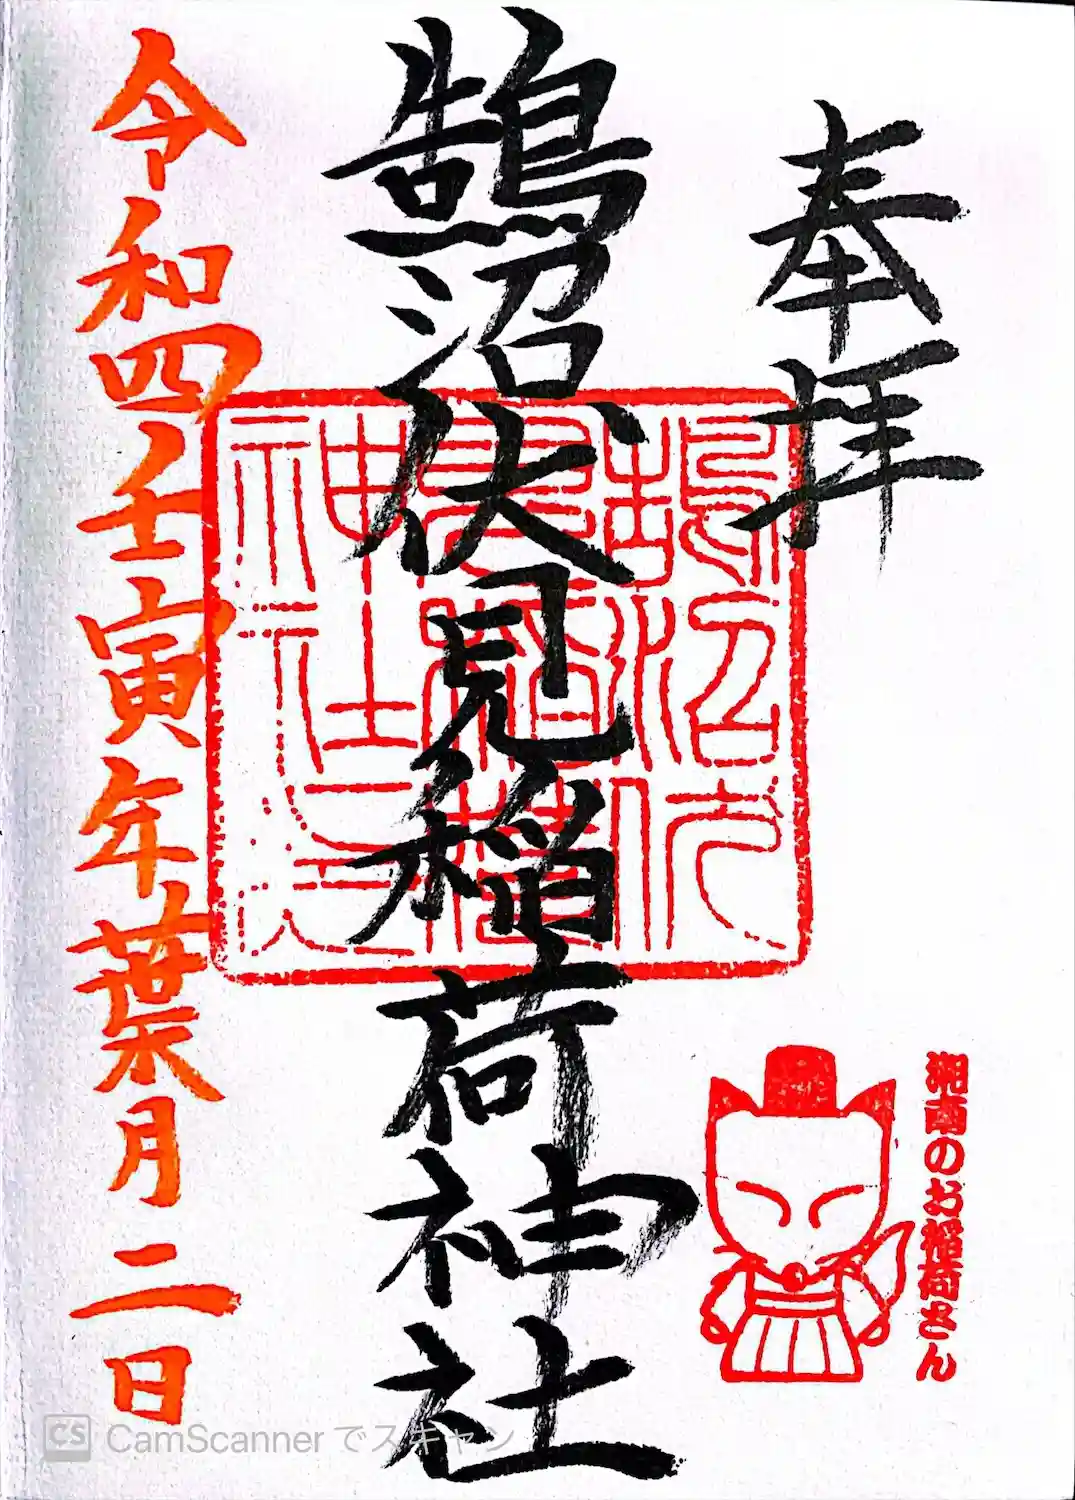 奉拝
鵠沼伏見稲荷神社
鵠沼伏
見稲荷
神社之
令和四壬寅年葉月二日
湘南のお稲荷さん
CS CamScanner でスキャン